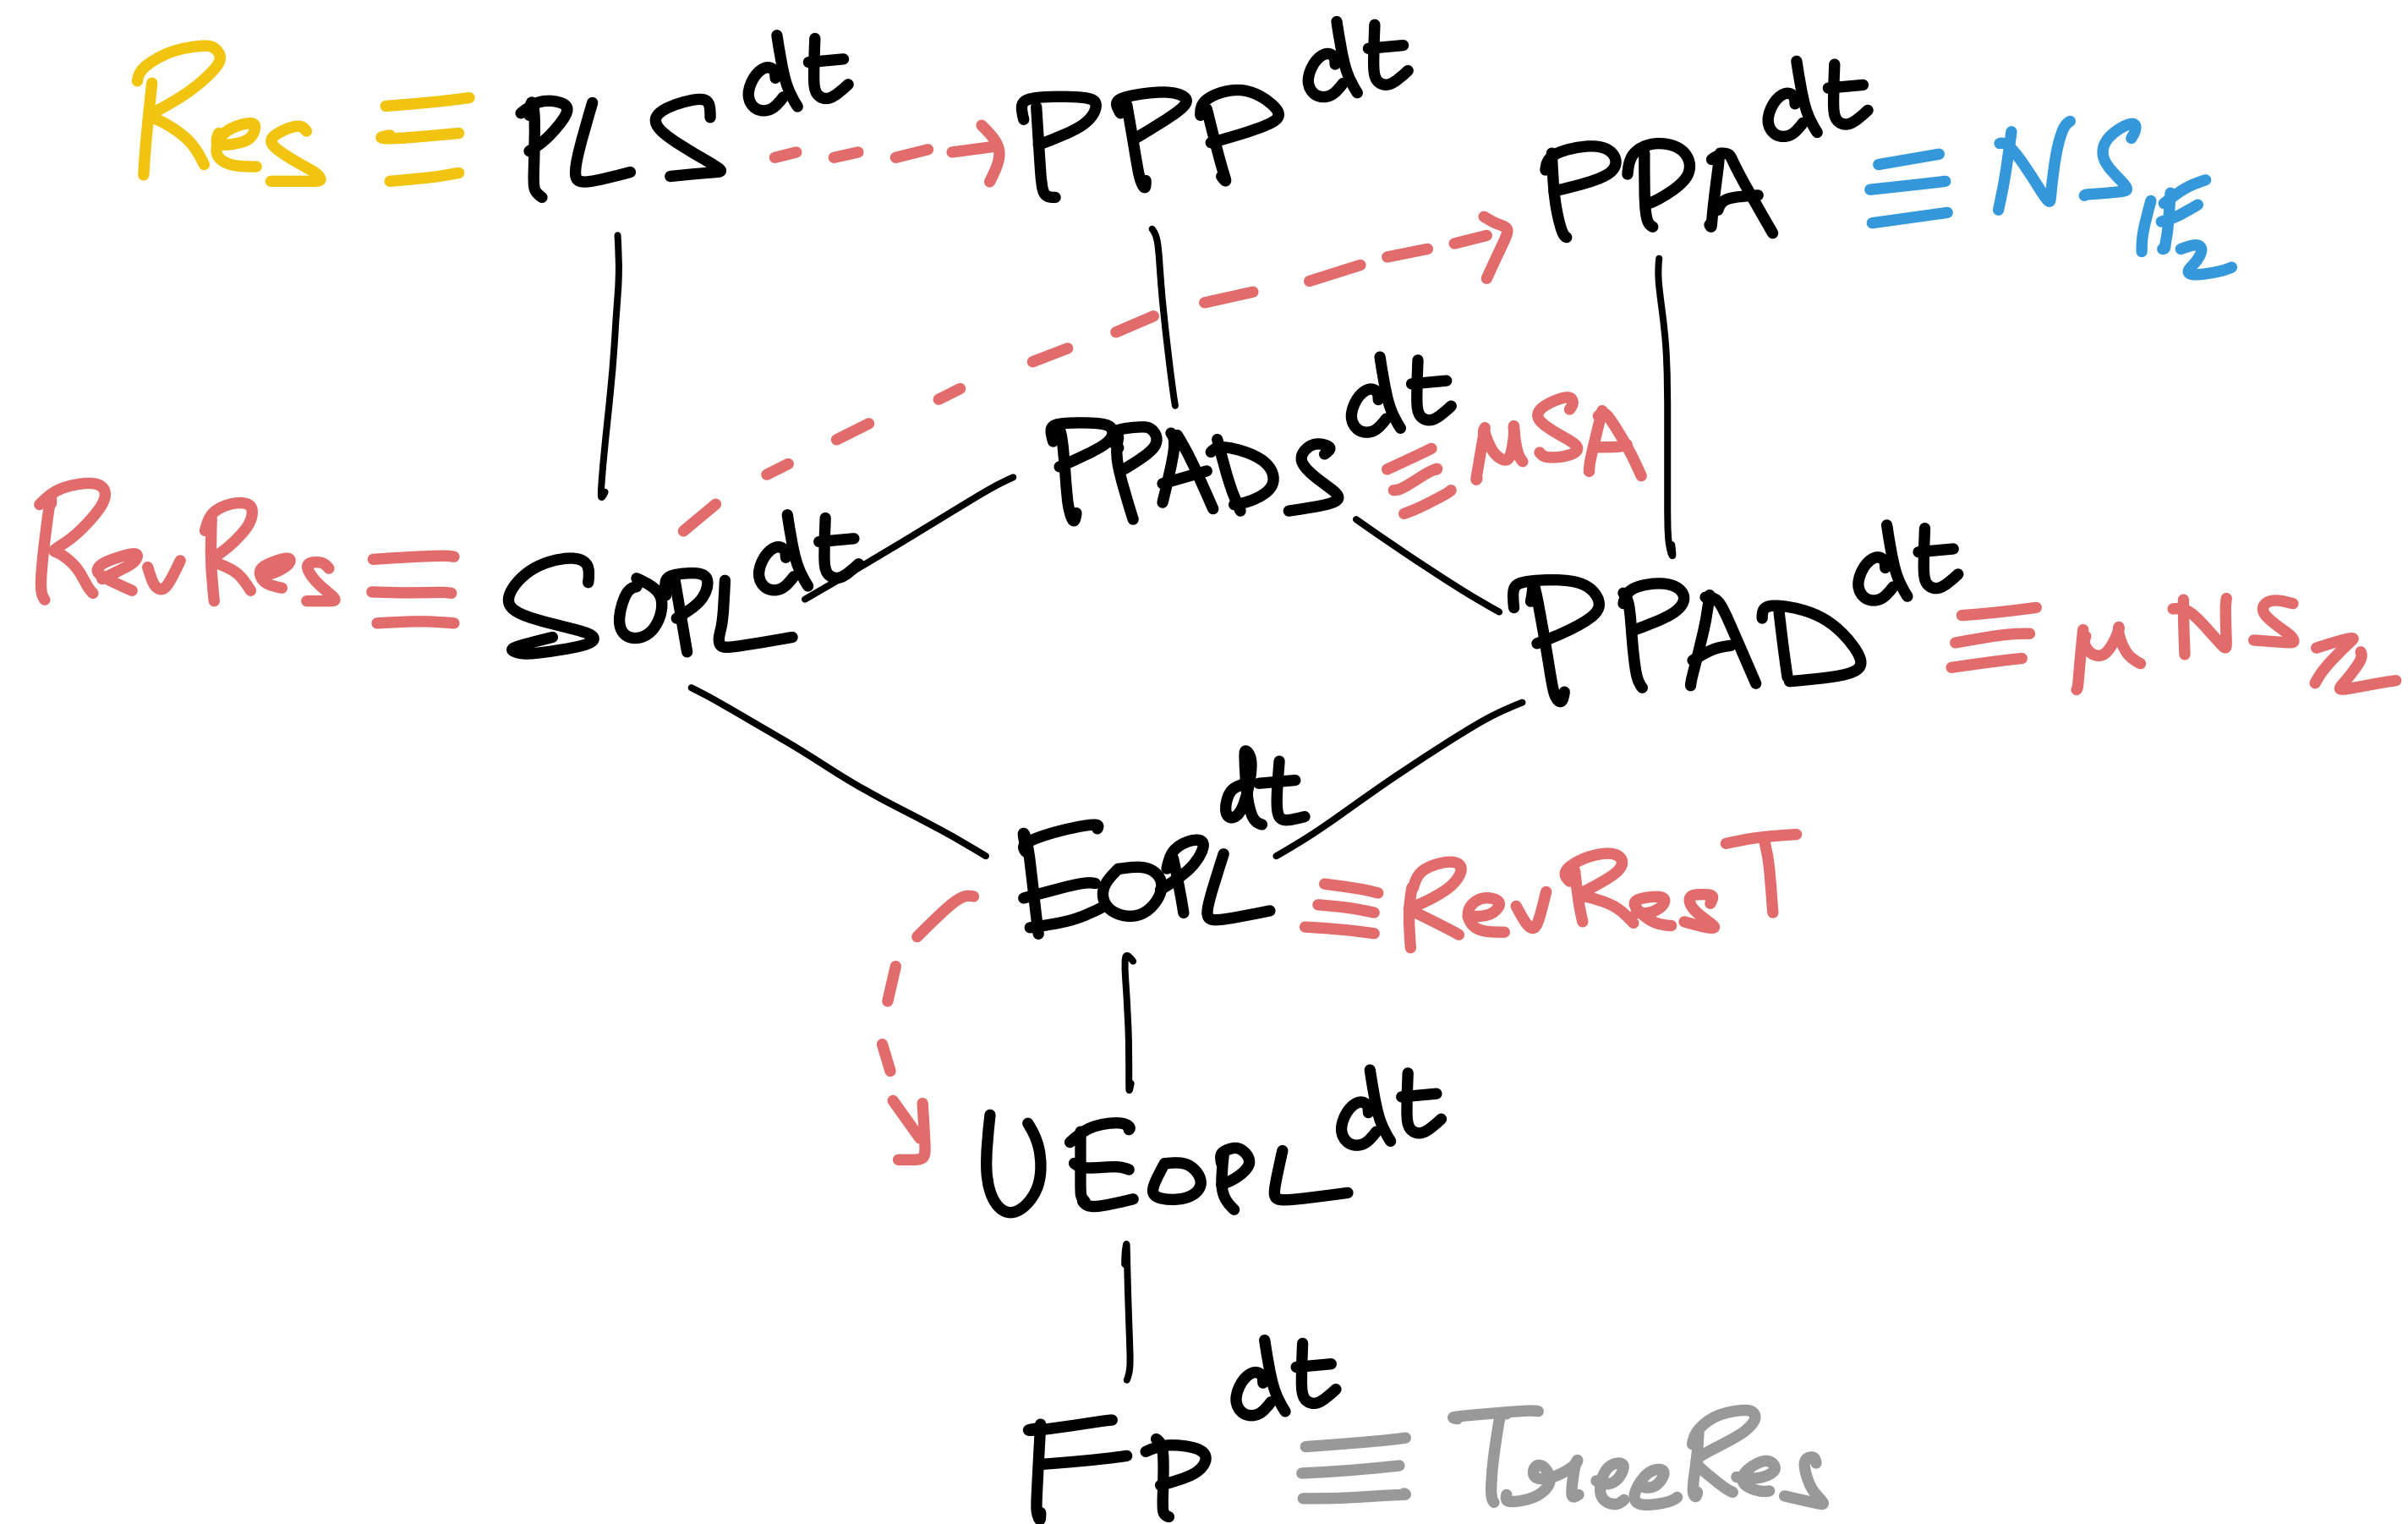 Res ≡ PLS^dt PPP^dt
PPA^dt ≡ NS_F₂
PPADS^dt ≡ uSA
RevRes ≡ SOPL^dt
PPAD^dt ≡ uNS_Z
EOPL^dt ≡ RevResT
UEOPL^dt
FP^dt ≡ TreeRes